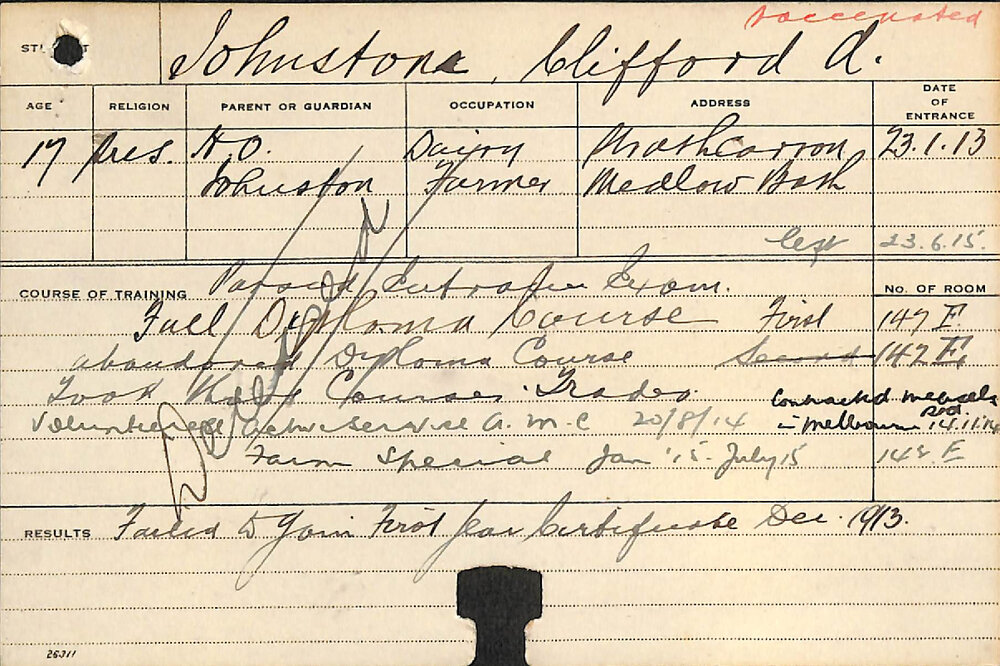 vaccinated
Johnston, Clifford A.
AGE RELIGION PARENT OR GUARDIAN OCCUPATION ADDRESS DATE OF ENTRANCE
17 Pres. H.O. Dairy Strathcarron 23.1.13
Johnston Farmer Medlow Bath
left 23.6.15.
COURSE OF TRAINING Passed Entrance Exam. No. OF ROOM
Full Diploma Course First 147 F.
abandoned Diploma Course Second 147 E,
Took Courses. Trades. Contracted measels
Volunteered active service A.M.C 20/8/14 in Melbourne 14.11.14
Farm Special Jan '15. July 15 148. E
RESULTS Failed to gain First Year Certificate Dec. 1913.
25311